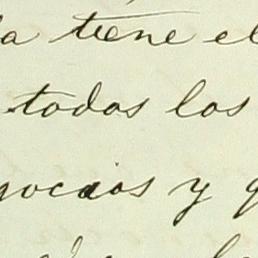 la tiene el
todos los
gocios y q